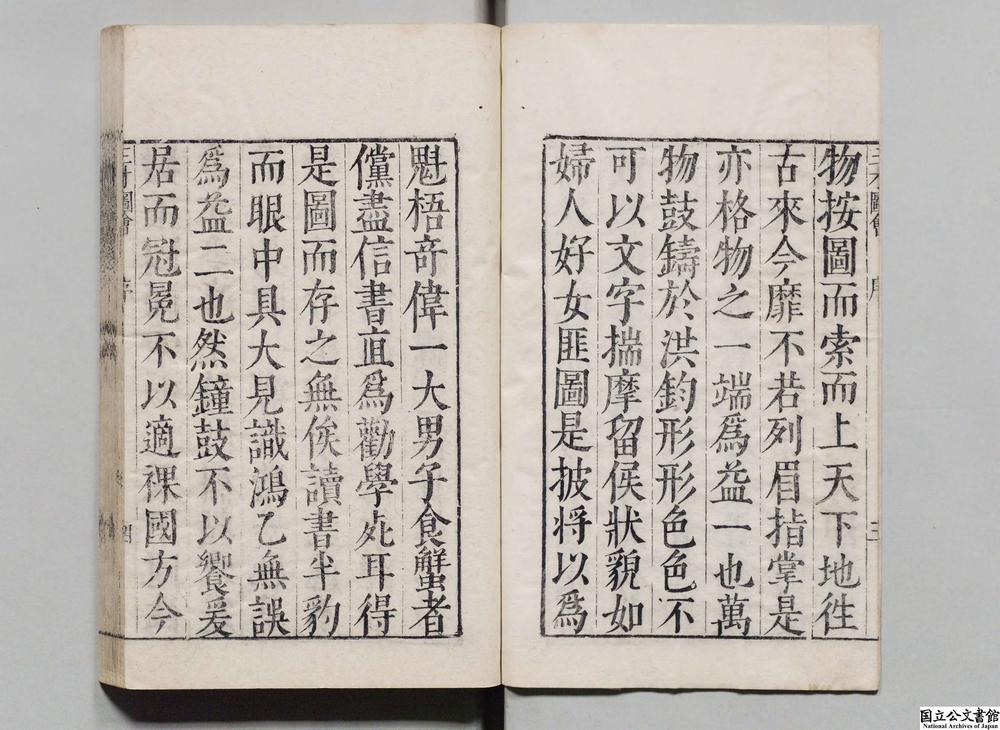 物按圖而索而上天下地徃
古來今靡不若列眉指掌是
亦格物之一端爲益一也萬
物鼓鑄於洪鈞形形色色不
可以文字揣摩留侯狀貌如
婦人好女匪圖是披將以爲
魁梧奇偉一大男子食蟹者
儻盡信書直爲勸學死耳得
是圖而存之無俟讀書半豹
而眼中具大見識鴻乙無誤
爲益二也然鐘鼓不以饗爰
居而冠冕不以適裸國方今
三才圖會
序
四
三才圖會
序
三
国立公文書館
National Archives of Japan